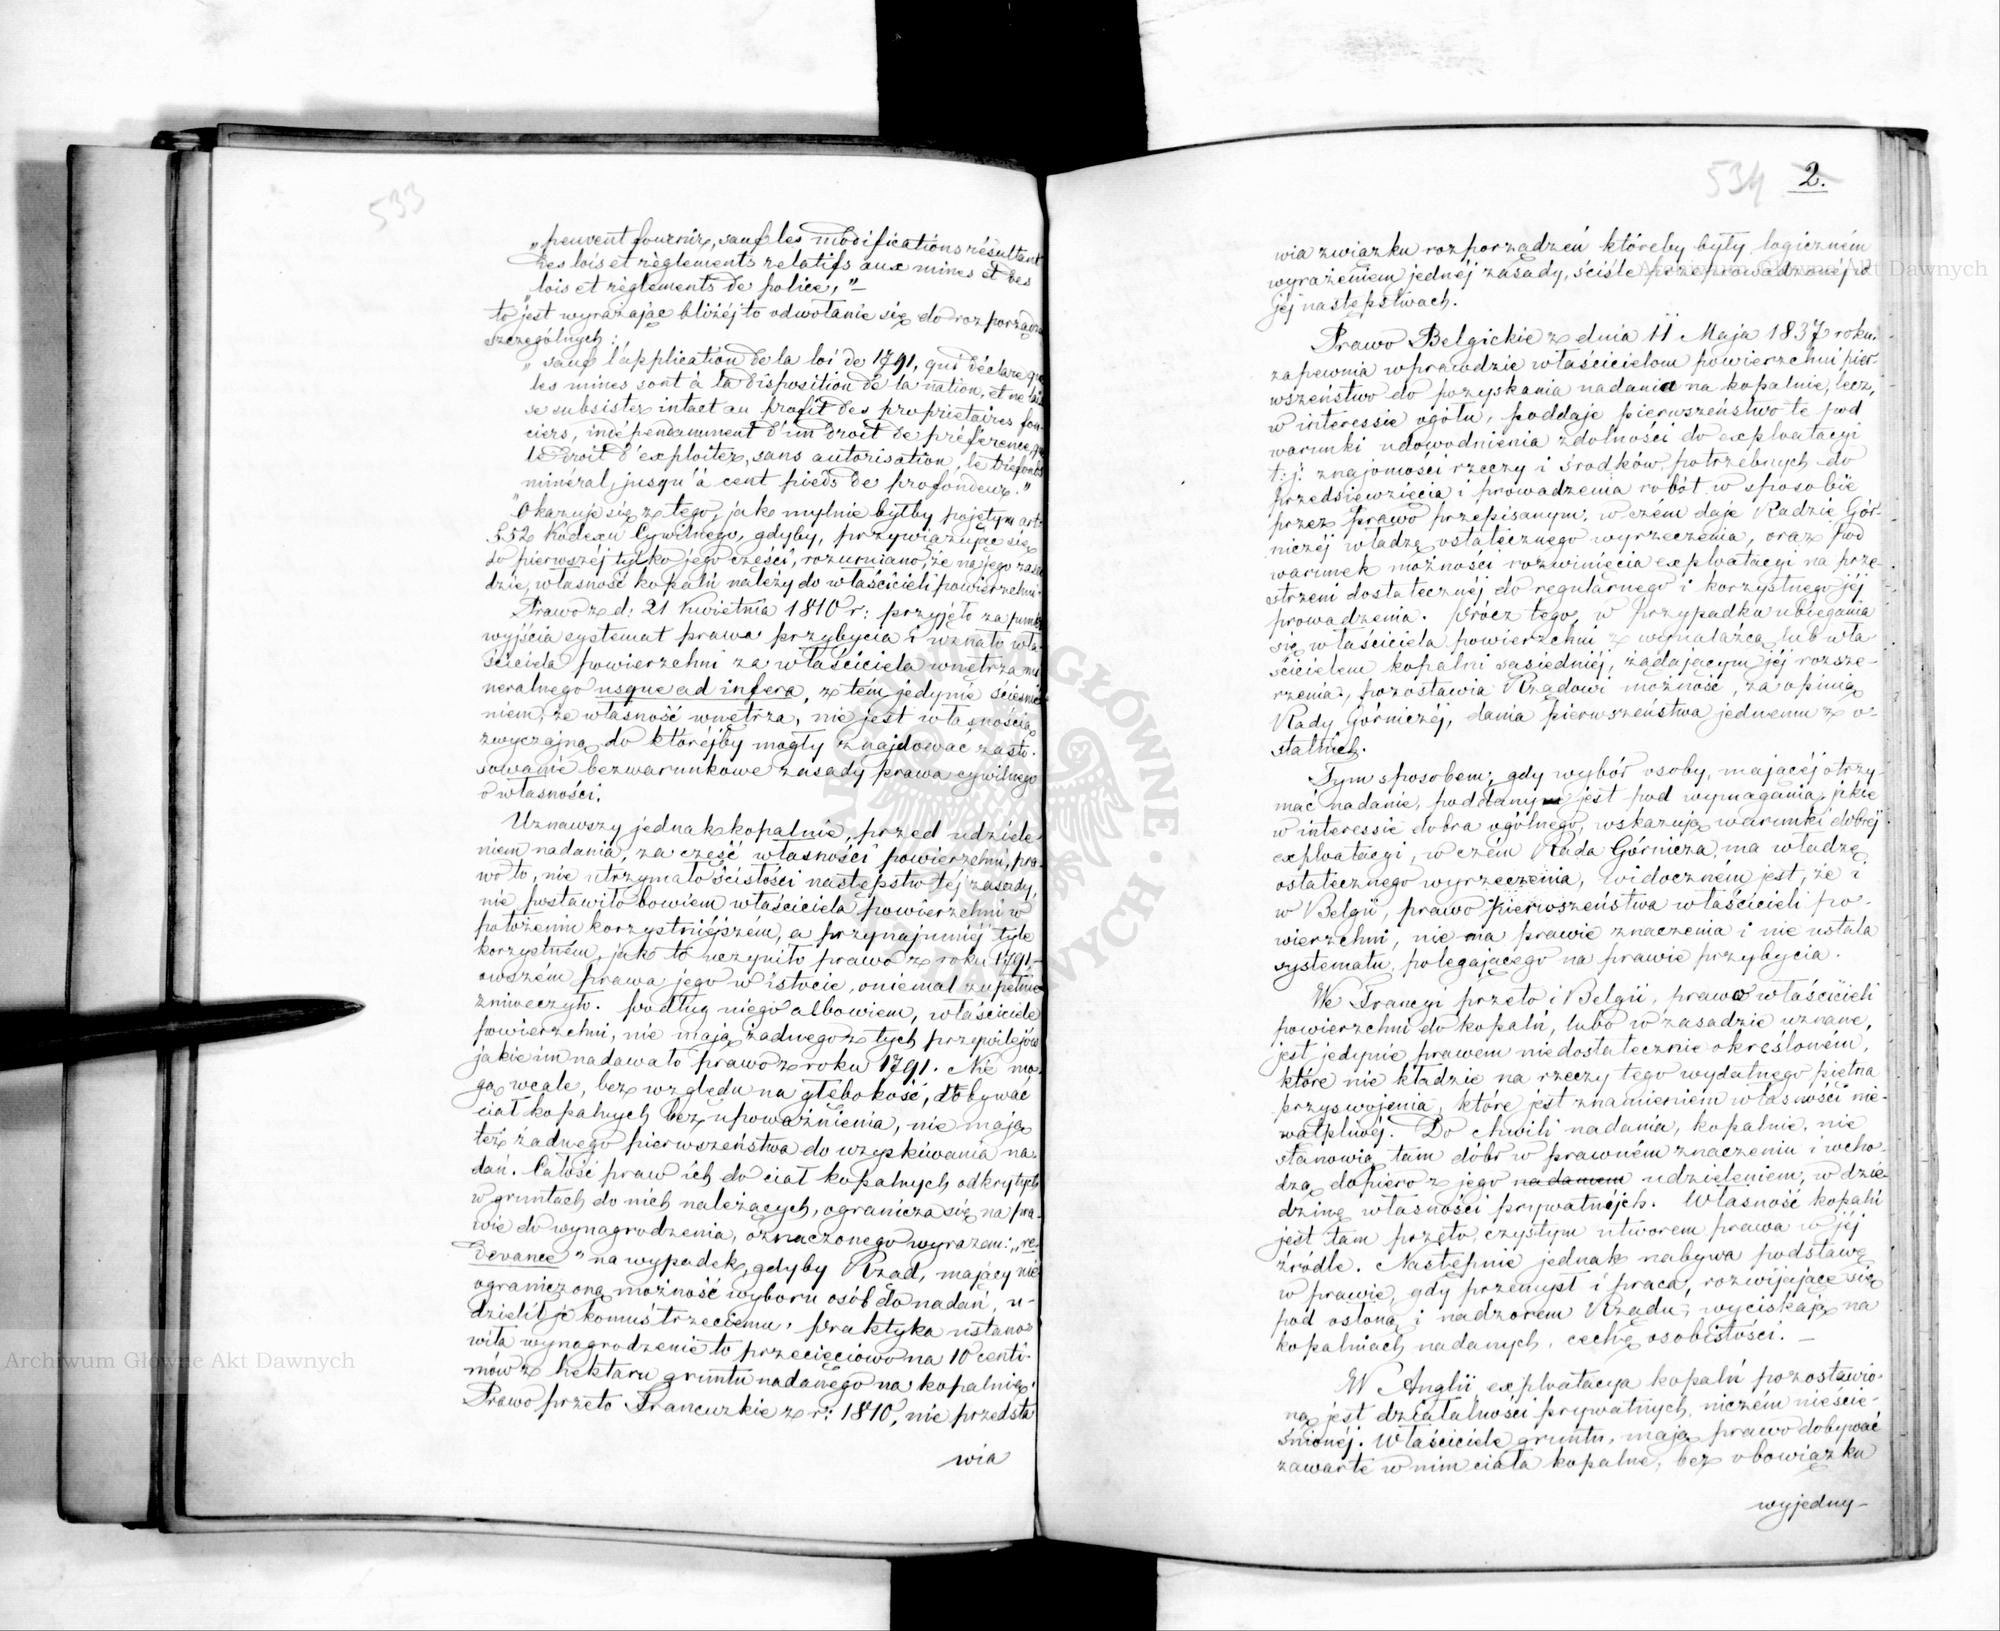 533
„peuvent fournir, sauf les modifications résultant
des lois et règlements relatifs aux mines et des
„lois et règlements de police,"—
to jest wyrażając bliżéj to odwołanie się do rozporządzeń
szczególnych:
„sauf l'application de la loi de 1791, qui déclare que
les mines sont à la disposition de la nation, et ne lais
se subsister intact au profit des propriétaires fon-
ciers, indépendamment d'un droit de préférence, que
le droit d'exploiter, sans autorisation, le tréfonds
minéral, jusqu'à cent pieds de profondeur."
Okazuje się z tego, jak mylnie byłby pojętym art:
552 Kodexu Cywilnego, gdyby, przywiązując się
do pierwszéj tylko jego części, rozumiano, że na jego zasa
dzie, własność kopalń należy do właścicieli powierzchni.
Prawo z d: 21 Kwietnia 1810 r: przyjęło za punkt
wyjścia systemat prawa przybycia i uznało wła-
ściciela powierzchni za właściciela wnętrza mi
neralnego usque ad infera, z tém jedynie ścieśnie
niem, że własność wnętrza, nie jest własnością
zwyczajną do któréjby mogły znajdować zasto-
sowanie bezwarunkowe zasady prawa cywilnego
o własności.
Uznawszy jednak kopalnie, przed udziele-
niem nadania, za część własności powierzchni, pra-
wo to, nie utrzymało ścisłości następstw téj zasady,
nie postawiło bowiem właściciela powierzchni w
położeniu korzystniejszém, a przynajmniéj tyle
korzystném, jak to uczyniło prawo z roku 1791—
owszém prawa jego w istocie, oniemal zupełnie
zniweczyło. Podług niego albowiem, właściciele
powierzchni, nie mają żadnego z tych przywilejów
jakie im nadawało prawo z roku 1791. Nie mo-
gą wcale, bez względu na głębokość, dobywać
ciał kopalnych bez upoważnienia, nie mają
też żadnego pierwszeństwa do uzyskiwania na-
dań. Całość praw ich do ciał kopalnych odkrytych
w gruntach do nich należących, ogranicza się na pra-
wie do wynagrodzenia, oznaczonego wyrazem: „re-
devance" na wypadek, gdyby Rząd, mający nie
ograniczoną możność wyboru osób do nadań, u-
dzielił je komuś trzeciemu. Praktyka ustano-
wiła wynagrodzenie to przecięciowo na 10 centi-
mów z hektaru gruntu nadanego na kopalnię.
Prawo przeto Francuzkie z r: 1810, nie przedsta
wia
534 2.
wia związku rozporządzeń któreby były logiczném
wyrażeniem jednéj zasady, ściśle przeprowadzonéj w
jéj następstwach.
Prawo Belgickie z dnia 11 Maja 1837 roku
zapewnia wprawdzie właścicielom powierzchni pier-
wszeństwo do pozyskania nadania na kopalnie, lecz,
w interessie ogółu, poddaje pierwszeństwo te pod
warunki udowodnienia zdolności do exploatacyi
t:j: znajomości rzeczy i środków potrzebnych do
przedsięwzięcia i prowadzenia robót w sposobie
przez prawo przepisanym, w czem daje Radzie Gór-
niczéj władzę ostatecznego wyrzeczenia, oraz pod
warunek możności rozwinięcia exploatacyi na prze-
strzeni dostatecznéj do regularnego i korzystnego jéj
prowadzenia. Prócz tego, w przypadku ubiegania
się właściciela powierzchni z wynalazcą lub wła-
ścicielem kopalni sąsiedniéj, żądającym jéj rozsze-
rzenia, pozostawia Rządowi możność, za opinią
Rady Górniczéj, dania pierwszeństwa jednemu z o-
statnich.
Tym sposobem, gdy wybór osoby, mającéj otrzy-
mać nadanie, poddany jest pod wymagania, jakie
w interessie dobra ogólnego, wskazują warunki dobréj
exploatacyi, w czém Rada Górnicza, ma władzę
ostatecznego wyrzeczenia, widoczném jest, że i
w Belgii, prawo pierwszeństwa właścicieli po-
wierzchni, nie ma prawie znaczenia i nie ustala
systematu, polegającego na prawie przybycia.
We Francyi przeto i Belgii, prawo właścicieli
powierzchni do kopalń, lubo w zasadzie uznane,
jest jedynie prawem niedostatecznie określoném,
które nie kładzie na rzeczy tego wydatnego piętna
przyswojenia, które jest znamieniem własności nie-
wątpliwéj. Do chwili nadania, kopalnie, nie
stanowią tam dóbr w prawném znaczeniu i wcho-
dzą dopiero z jego nadaniem udzieleniem, w dzie-
dzinę własności prywatnéj. Własność kopalń
jest tam przeto, czystym utworem prawa w jéj
źródle. Następnie jednak nabywa podstawę
w prawie, gdy przemysł i praca, rozwijające się
pod osłoną i nadzorem Rządu, wyciskają na
kopalniach nadanych, cechę osobistości. —
W Anglii exploatacya kopalń pozostawio-
ną jest działalności prywatnych, niczém nieście-
śnionéj. Właściciele gruntu, mają prawo dobywać
zawarte w nim ciała kopalne, bez obowiązku
wyjedny-
Archiwum Główne Akt Dawnych
Archiwum Główne Akt Dawnych
ARCHIWUM GŁÓWNE AKT DAWNYCH